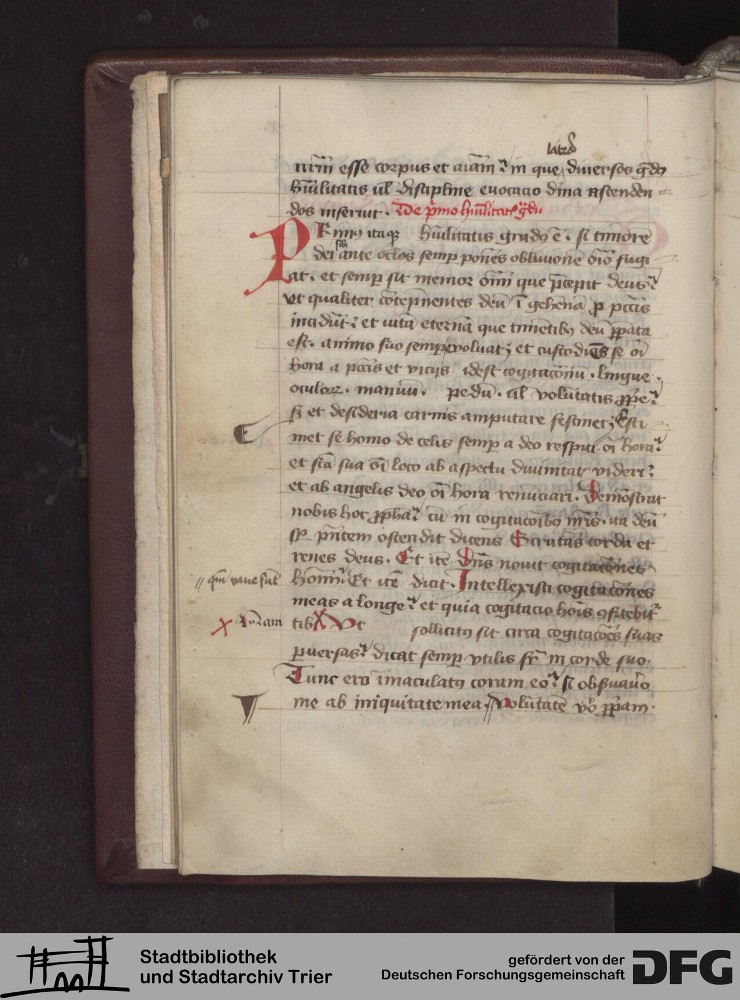 latera
nrm esse corpus et aiam in que diuersos gdus
humilitatis ul discipline euocacio diuina ascenden
dos inseruit. De pmo humilitatis gdu
PRimus itaqz humilitatis gradus e. si timore
dei sibi ante oclos semp ponens obliuione oio fugi
at. et semp sit memor oim que pcepit deus
vt qualiter cotepnentes deu i gehena p pccis
incidut et vita eterna que timetibus deu ppata
est. animo suo semp euoluat et custodiens se oi
hora a pccis et vicijs idest cogitacionu. lingue.
oculoꝝ. manuu. pedu. ul volutatis pprie
sz et desideria carnis amputare festinet Esti
met se homo de celis semp a deo respici oi hora
et fca sua oi loco ab aspectu diuinitatis videri
et ab angelis deo oi hora renuciari. Demonstrat
nobis hoc ppha cu in cogitacoibus nris ita deu
sp pntem ostendit dicens Scrutans corda et
renes deus. Et ite Dns nouit cogitacones
hoim Et ite dicit. Intellexisti cogitacones
qm vane sut
meas a longe et quia cogitacio hois ofitebit
tibi Vt sollicitus sit circa cogitacoes suas
puersas dicat semp vtilis fr in corde suo.
Tunc ero imaculatus coram eo si obseruauero
me ab iniquitate mea Volutate vo ppriam.
Stadtbibliothek
und Stadtarchiv Trier
gefördert von der
Deutschen Forschungsgemeinschaft
DFG